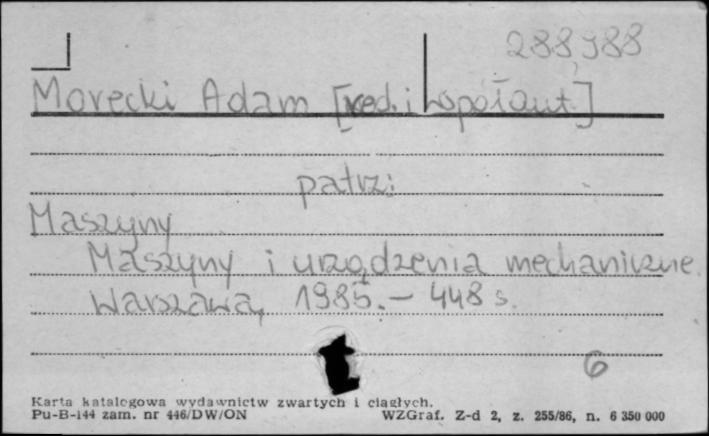 288,988
Morecki Adam [red. i współaut.]
patrz:
Maszyny
Maszyny i urządzenia mechaniczne.
Warszawa, 1985. – 448 s.
6
Karta katalogowa wydawnictw zwartych i ciągłych.
Pu-B-144 zam. nr 446/DW/ON WZGraf. Z-d 2, z. 255/86, n. 6 350 000